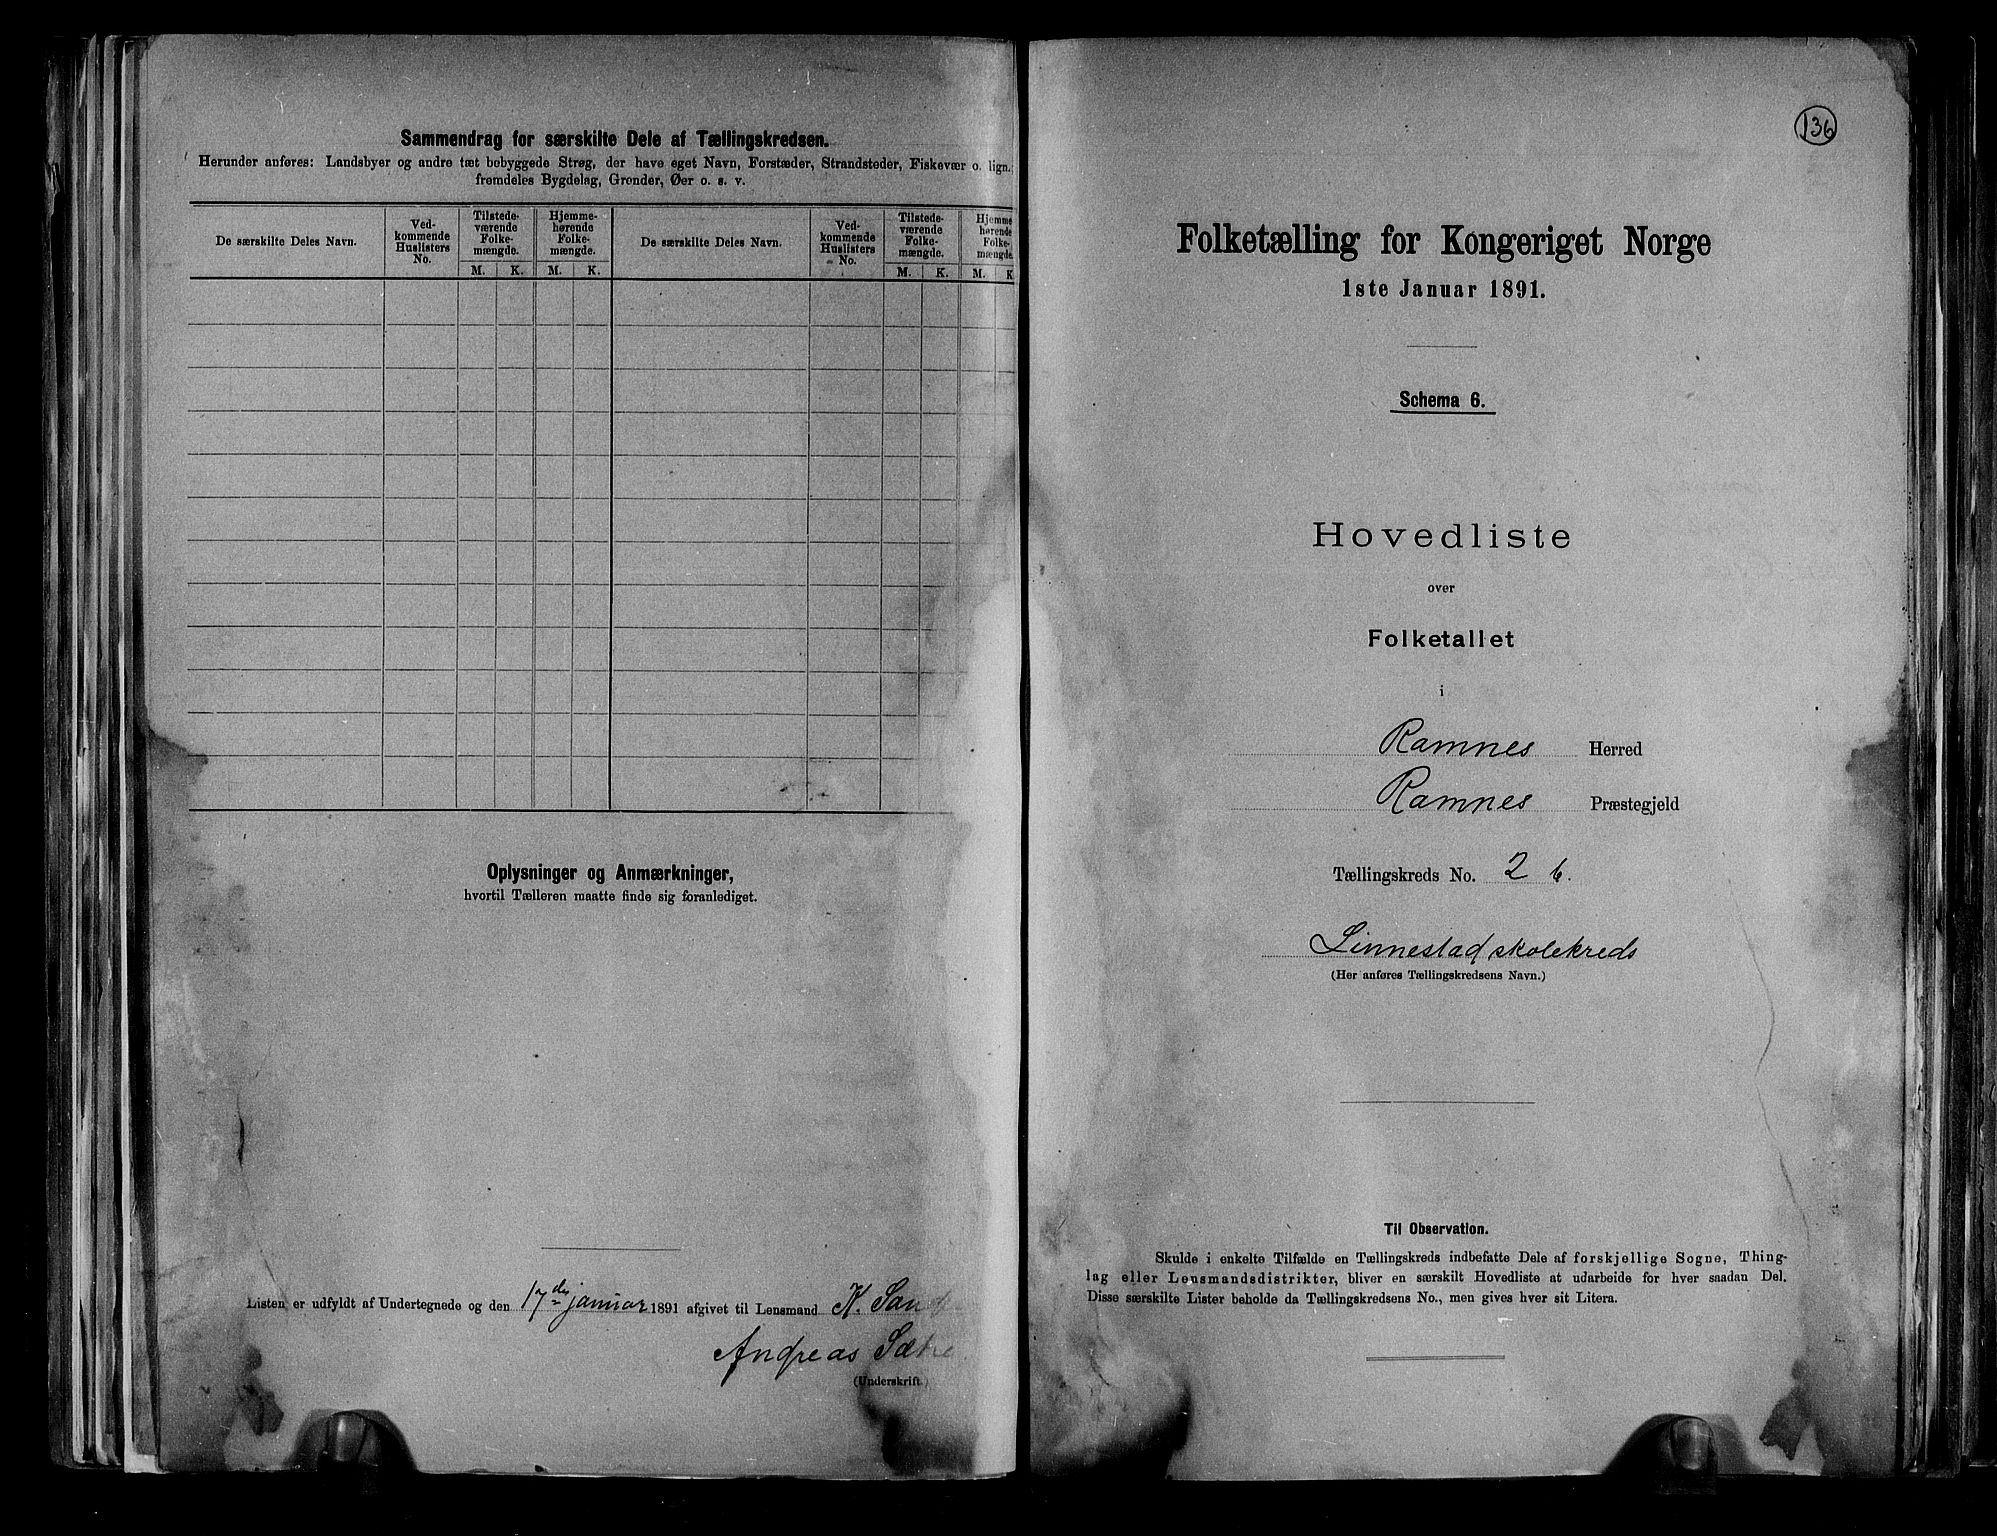 Sammendrag for særskilte Dele af Tællingskredsen.
Herunder anføres: Landsbyer og andre tæt bebyggede Strøg, der have eget Navn, Forstæder, Strandsteder, Fiskevær o. lign.
fremdeles Bygdelag, Grender, Øer o. s. v.
De særskilte Deles Navn.
Ved-
kommende
Huslisters
No.
Tilstede-
værende
Folke-
mængde.
M. K.
Hjemme-
hørende
Folke-
mængde.
M. K.
De særskilte Deles Navn.
Ved-
kommende
Huslisters
No.
Tilstede-
værende
Folke-
mængde.
M. K.
Hjemme
hørende
Folke-
mængde.
M. K
Oplysninger og Anmærkninger,
hvortil Tælleren maatte finde sig foranlediget.
Listen er udfyldt af Undertegnede og den 17de januar 1891 afgivet til Lensmand K. Sand
Andreas Sætre
(Underskrift)
136
Folketælling for Kongeriget Norge
1ste Januar 1891.
Schema 6.
Hovedliste
over
Folketallet
i
Ramnes Herred
Ramnes Præstegjeld
Tællingskreds No. 2 b.
Linnestad skolekreds
(Her anføres Tællingskredsens Navn.)
Til Observation.
Skulde i enkelte Tilfælde en Tællingskreds indbefatte Dele af forskjellige Sogne, Thing-
lag eller Lensmandsdistrikter, bliver en særskilt Hovedliste at udarbeide for hver saadan Del.
Disse særskilte Lister beholde da Tællingskredsens No., men gives hver sit Litera.